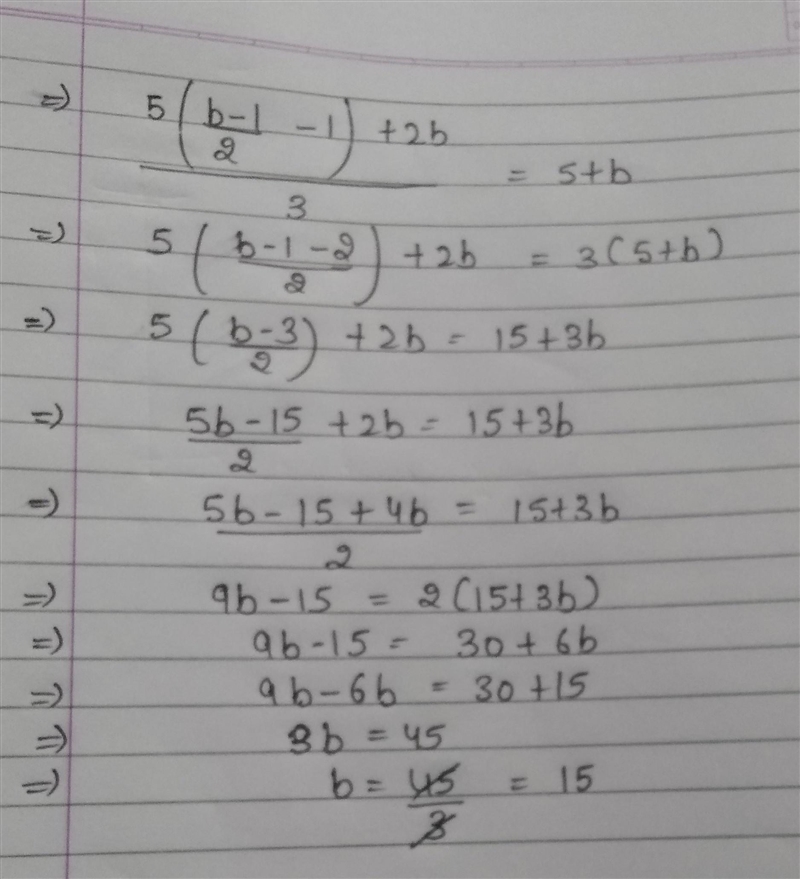 ⇒ (5((b-1)/2 - 1) + 2b)/3 = 5+b
⇒ 5((b-1-2)/2) + 2b = 3(5+b)
⇒ 5((b-3)/2) + 2b = 15+3b
⇒ (5b-15)/2 + 2b = 15+3b
⇒ (5b-15+4b)/2 = 15+3b
⇒ 9b-15 = 2(15+3b)
⇒ 9b-15 = 30+6b
⇒ 9b-6b = 30+15
⇒ 3b = 45
⇒ b = 45/3 = 15